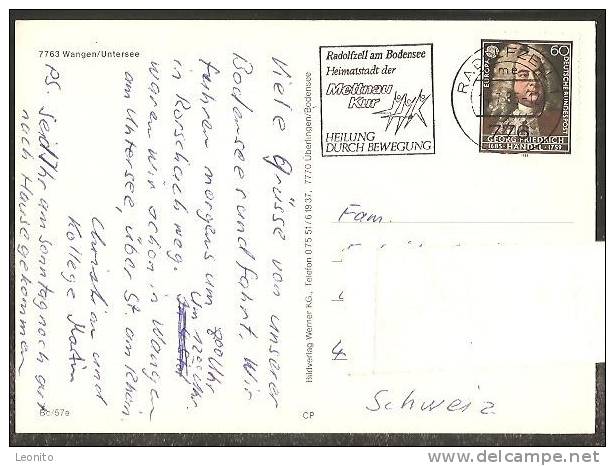 7763 Wangen/Untersee
Viele Grüsse von unserer
Bodenseerundfahrt. Wir
fuhren morgens um 800 Uhr
in Rorschach weg. Um 1200 Uhr
waren wir schon in Wangen
am Untersee, über St. am Rhein.
Christian und
Kollege Martin
PS. Seid Ihr am Sonntag noch gut
nach Hause gekommen
Bc/57e
Bildverlag Werner KG., Telefon 0 75 51/6 19 37, 7770 Überlingen/Bodensee
CP
Radolfzell am Bodensee
Heimatstadt der
Mettnau
Kur
HEILUNG
DURCH BEWEGUNG
RADOLFZELL
776
EUROPA
60
DEUTSCHE BUNDESPOST
GEORG FRIEDRICH
1685 HÄNDEL 1759
Fam.
4
Schweiz
Leonito
www.delcampe.net